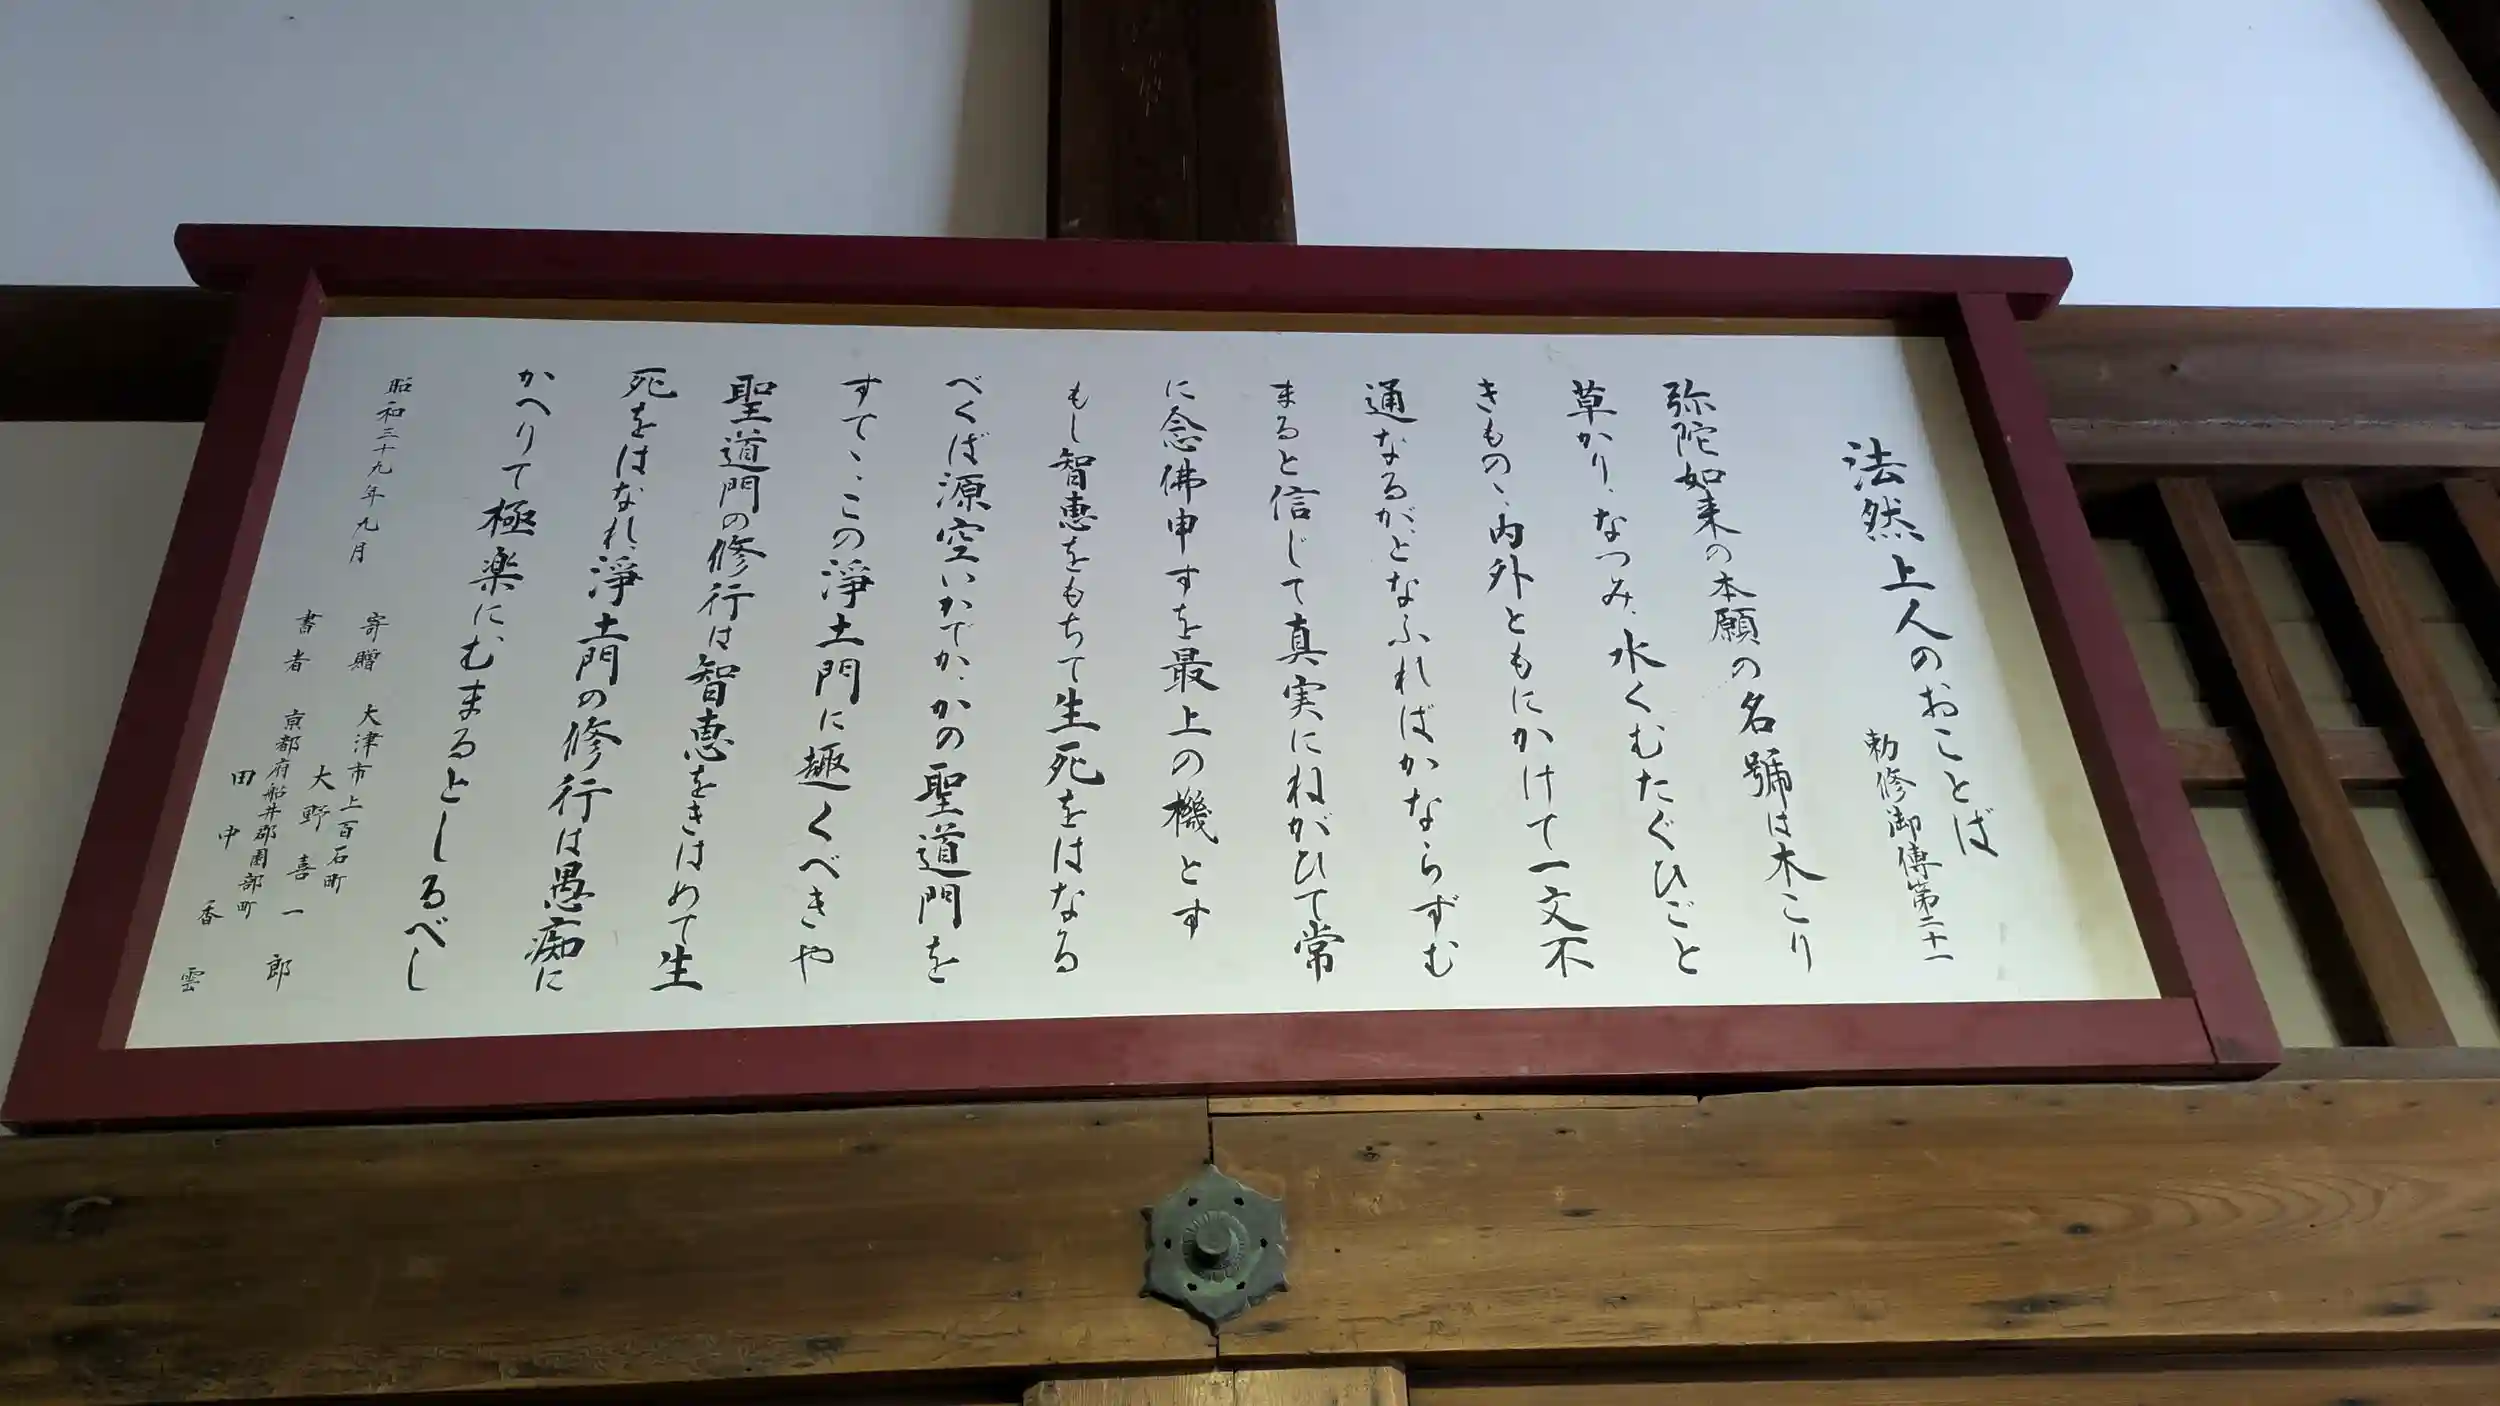 法然上人のおことば
勅修御傳第二十一
弥陀如来の本願の名號は木こり
草かり、なつみ、水くむたぐひごと
きもの、内外ともにかけて一文不
通なるが、となふればかならずむ
まると信じて真実にねがひて常
に念佛申すを最上の機とす
もし智恵をもちて生死をはなる
べくば源空いかでか、かの聖道門を
すてゝ、この淨土門に趣くべきや
聖道門の修行は智恵をきはめて生
死をはなれ、淨土門の修行は愚痴に
かへりて極楽にむまるとしるべし
昭和三十九年九月
寄贈 大津市上百石町
大野喜一郎
書者 京都府船井郡園部町
田中香雲